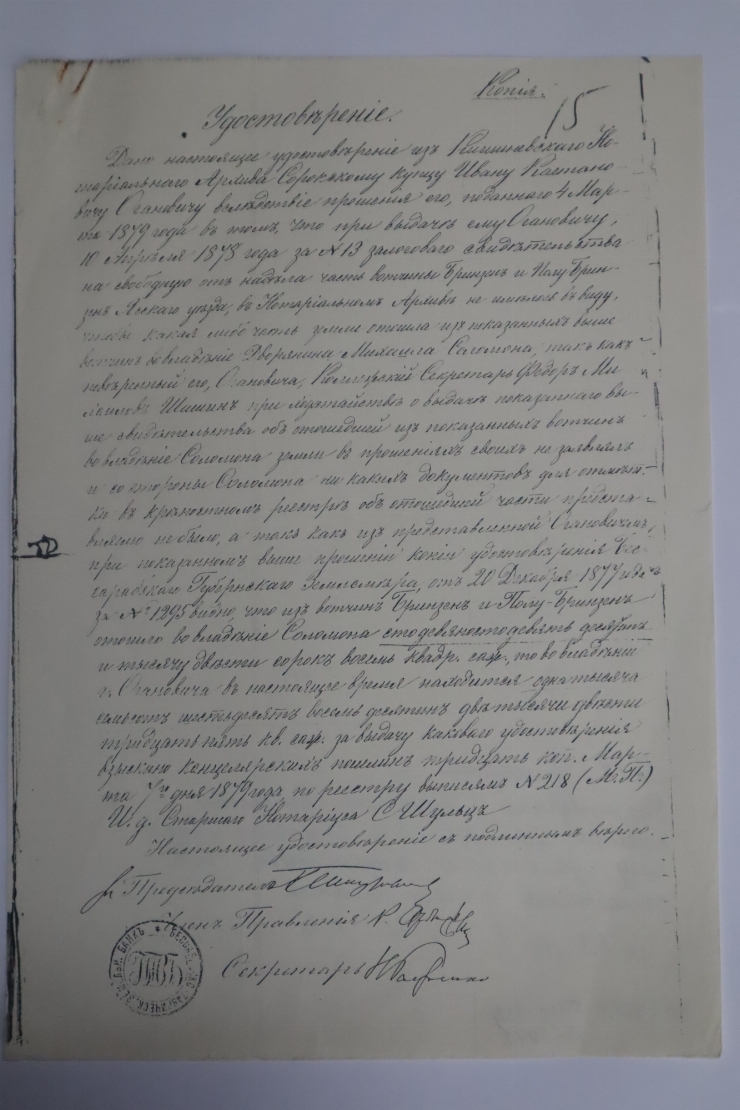 Копія.
15
Удостовѣреніе.
Дано настоящее удостовѣреніе изъ Кишиневскаго Но-
таріальнаго Архива Сорокскому купцу Ивану Каетано-
вичу Огановичу вслѣдствіе прошенія его, поданнаго 4 Мар-
та 1879 года въ томъ, что при выдачѣ ему Огановичу,
10 Апрѣля 1878 года за N 13 залогового свидѣтельства
на свободную отъ надѣла часть вотчины Бринзенъ и Полу-Брин-
зенъ Ясскаго уѣзда, въ Нотаріальномъ Архивѣ не имѣлось въ виду,
чтобы какая либо часть земли отошла изъ показанныхъ выше
вотчинъ во владѣніе Дворянина Михаила Соломона, такъ какъ
повѣренный его, Огановича, Секретарь Федоръ Ми-
хайловъ Шашинъ при ходатайствѣ о выдачѣ показаннаго вы-
ше свидѣтельства объ отошедшей изъ показанныхъ вотчинъ
во владѣніе Соломона земли въ прошеніяхъ своихъ не заявлялъ
и со стороны Соломона ни какихъ документовъ для отмѣт-
ки въ крѣпостномъ реестрѣ объ отошедшей части предста-
вляемо не было, а такъ какъ изъ представленной Огановичемъ,
при показанномъ выше прошеніи копіи удостовѣренія Бес-
сарабскаго Губернскаго Землемѣра, отъ 20 Декабря 1877 года
за N 1295 видно, что изъ вотчинъ Бринзенъ и Полу-Бринзенъ
отошло во владѣніе Соломона сто девяносто девять десятинъ
и тысячу двѣсти сорокъ восемь квадр. саж., то во владѣніи
г. Огановича въ настоящее время находится одна тысяча
семьсотъ шестьдесятъ восемь десятинъ двѣ тысячи двѣсти
тридцать пять кв. саж. за выдачу каковаго удостовѣренія
взыскано канцелярскихъ пошлинъ тридцать коп. Мар-
та 7го дня 1879 года, по реестру выписямъ N 218 (М. П.)
И. д. Старшаго Нотаріуса С. Шульцъ
Настоящее удостовѣреніе съ подлиннымъ вѣрно.
Предсѣдатель
Членъ Правленія К.
Секретарь Н